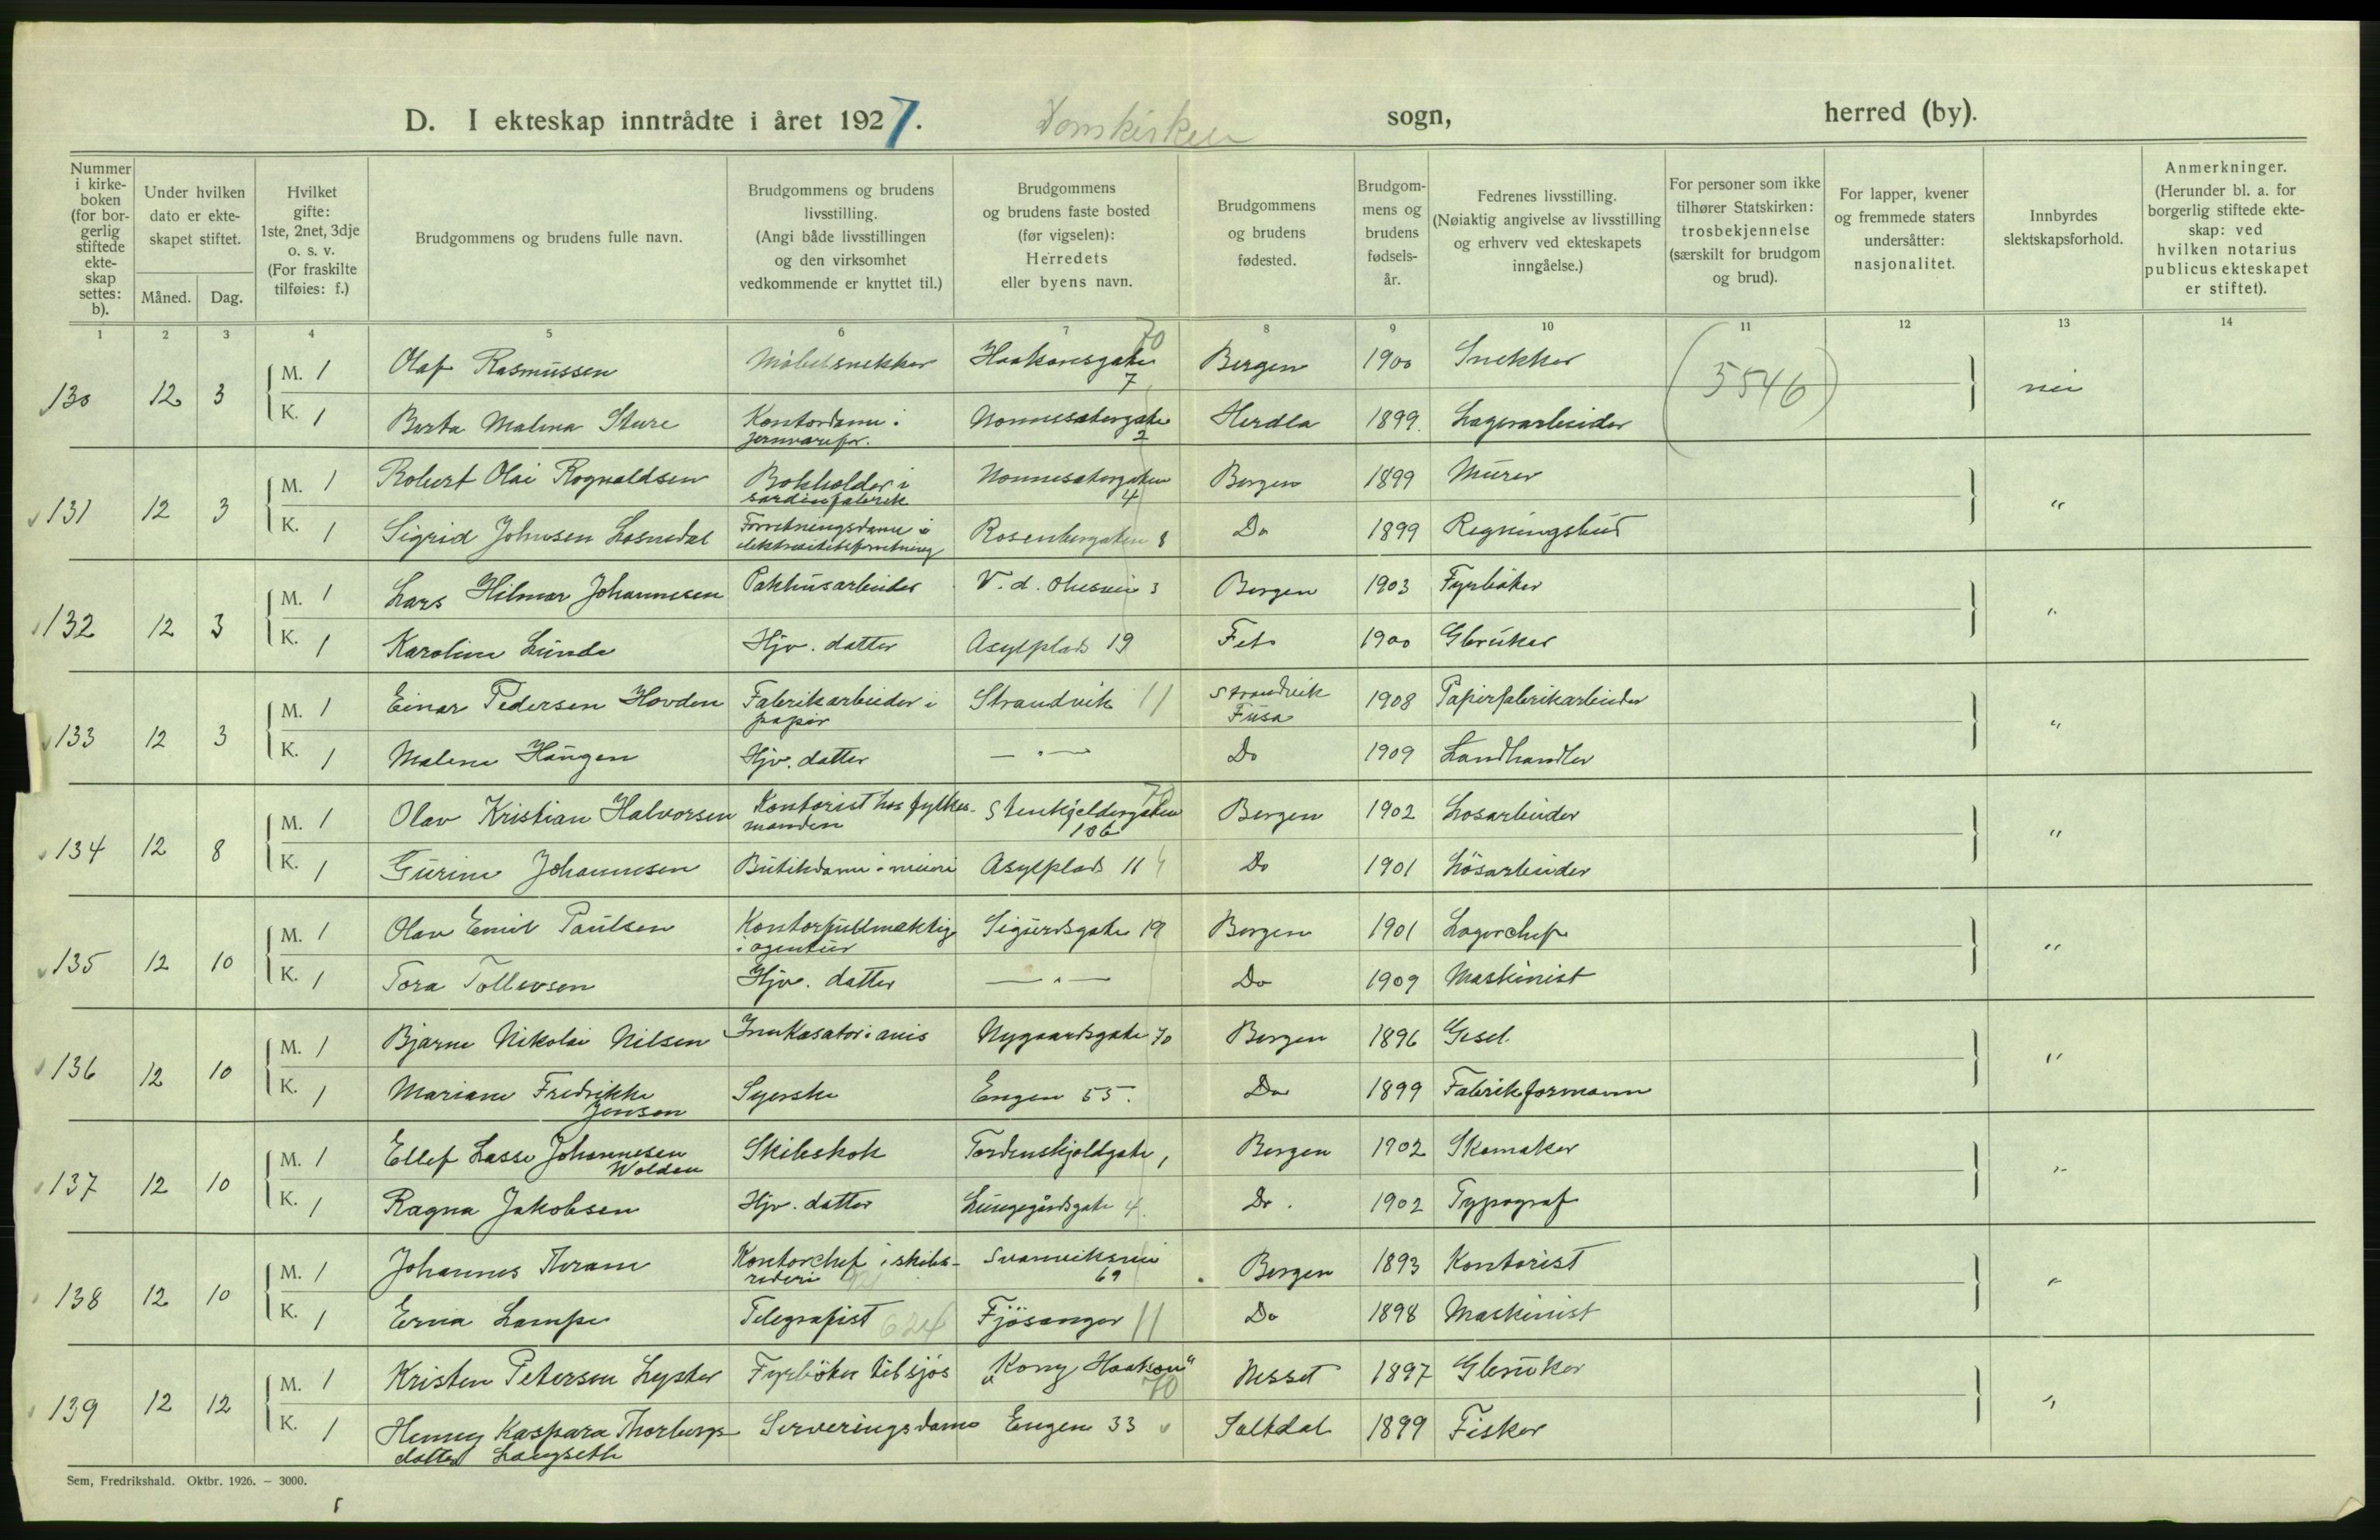 D. I ekteskap inntrådte i året 1927. Domkirken sogn, herred (by).
Nummer i kirke-boken (for bor-gerlig stiftede ekte-skap settes: b).
Under hvilken dato er ekte-skapet stiftet.
Måned. Dag.
Hvilket gifte: 1ste, 2net, 3dje o. s. v. (For fraskilte tilføies: f.)
Brudgommens og brudens fulle navn.
Brudgommens og brudens livsstilling. (Angi både livsstillingen og den virksomhet vedkommende er knyttet til.)
Brudgommens og brudens faste bosted (før vigselen): Herredets eller byens navn.
Brudgommens og brudens fødested.
Brudgom-mens og brudens fødsels-år.
Fedrenes livsstilling. (Nøiaktig angivelse av livsstilling og erhverv ved ekteskapets inngåelse.)
For personer som ikke tilhører Statskirken: trosbekjennelse (særskilt for brudgom og brud).
For lapper, kvener og fremmede staters undersåtter: nasjonalitet.
Innbyrdes slektskapsforhold.
Anmerkninger. (Herunder bl. a. for borgerlig stiftede ekte-skap: ved hvilken notarius publicus ekteskapet er stiftet).
1 2 3 4 5 6 7 8 9 10 11 12 13 14
70
130 12 3 M. 1 Olaf Rasmussen Møbelsnekker Haakonsgaten 7 Bergen 1900 Snekker (5546) nei
K. 1 Berta Malena Sture Kontordame i jernvarefor. Nonnesætergaten 2 Herdla 1899. Lagerarbeider
131 12 3 M. 1 Robert Olai Rognaldsen Bokholder i sardinfabrik Nonnesætergaten 4 Bergen 1899 Murer "
K. 1 Sigrid Johnsen Losnedal Forretningsdame i elektrisitetsforretning Rosenbergaten 8 Do 1899 Regningsbud
132 12 3 M. 1 Lars Hilmar Johannesen Pakhusarbeider V. d. Ohesvei 3 Bergen 1903 Fyrbøter "
K. 1 Karoline Lunde Hjv. datter Asylplads 19 Fet 1900 Gbruker
133 12 3 M. 1 Einar Pedersen Hovden Fabrikarbeider i papir Strandvik 11 Strandvik Fusa 1908 Papirfabrikarbeider "
K. 1 Malene Haugen Hjv. datter — " — Do 1909 Landhandler
70
134 12 8 M. 1 Olav Kristian Halvorsen Kontorist hos fylkes-manden Stenkjeldergaten 106 Bergen 1902 Losarbeider "
K. 1 Gurine Johannesen Butikdame i meieri Asylplads 11 Do 1901 Løsarbeider
135 12 10 M. 1 Olav Emil Paulsen Kontorfullmektig i agentur Sigurdsgate 19 Bergen 1901 Lagerchef "
K. 1 Tora Tollevsen Hjv. datter — " — Do 1909 Maskinist
136 12 10 M. 1 Bjarne Nikolai Nilsen Innkasator i avis Nygaardsgate 70 Bergen 1896 Gesel. "
K. 1 Mariane Fredrikke Jensen Syerske Engen 55. Do 1899 Fabrikformann
137 12 10 M. 1 Ellef Lasse Johannesen Wolden Skibskok Tordenskjoldgate 1 Bergen 1902 Skomaker "
K. 1 Ragna Jakobsen Hjv. datter Lungegårdsgate 4. Do. 1902 Typograf
138 12 10 M. 1 Johannes Kontorchef i skibs-rederi Svaneviksvei 69 Bergen 1893 Kontorist "
K. 1 Erna Lampe Telegrafist 624 Fjøsanger 11 Do 1898 Maskinist
139 12 12 M. 1 Kristen Petersen Lyster Fyrbøter til sjøs "Kong Haakon" 70 Nesset 1897 Gbruker "
K. 1 Henny Kaspara Thorbergs-datter Langseth Serveringsdame Engen 33 Saltdal 1899 Fisker
Sem, Fredrikshald. Oktbr. 1926. — 3000.